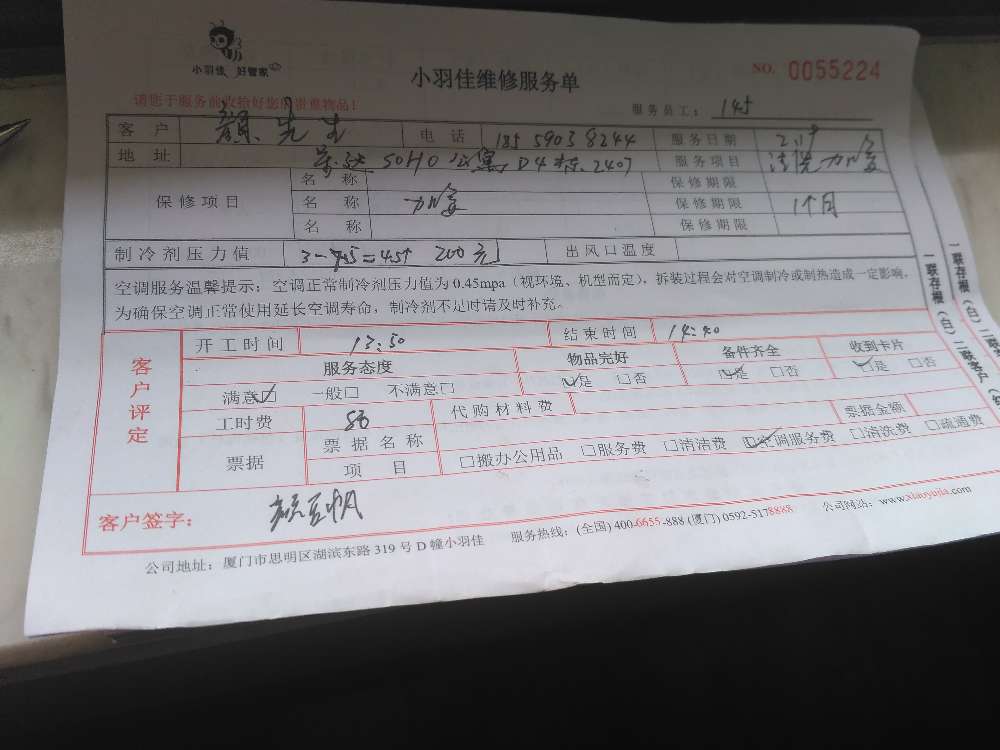 小羽佳 好管家
小羽佳维修服务单
NO. 0055224
请您于服务前收拾好您的贵重物品！
服务员工：
客户 颜先生 电话 18559038244 服务日期
地址 SOHO公寓D4栋2407 服务项目 清洗 加氟
保修项目 名称 保修期限
名称 加氟 保修期限 1个月
名称 保修期限
制冷剂压力值 200元 出风口温度
空调服务温馨提示：空调正常制冷剂压力值为0.45mpa（视环境、机型而定），拆装过程会对空调制冷或制热造成一定影响，
为确保空调正常使用延长空调寿命，制冷剂不足时请及时补充。
客户评定
开工时间 13:50 结束时间 14:40
服务态度 物品完好 备件齐全 收到卡片
满意☑ 一般□ 不满意□ ☑是 □否 ☑是 □否 ☑是 □否
工时费 代购材料费 票据金额
票据 票据名称
项目 □搬办公用品 □服务费 □清洁费 ☑空调服务费 □清洗费 □疏通费
客户签字：
公司地址：厦门市思明区湖滨东路319号D幢小羽佳 服务热线：(全国) 400-6655-888 (厦门) 0592-5178888 公司网站：www.xiaoyujia.com
一联存根（白）二联客户
一联存根（白）二